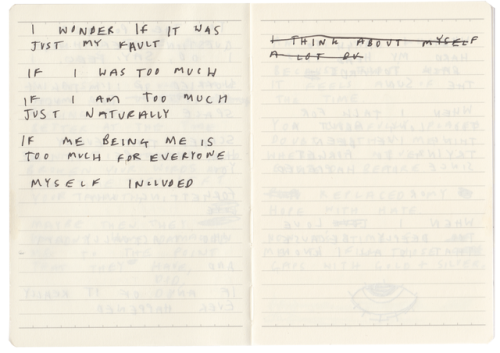 I WONDER IF IT WAS
JUST MY FAULT
IF I WAS TOO MUCH
IF I AM TOO MUCH
JUST NATURALLY
IF ME BEING ME IS
TOO MUCH FOR EVERYONE
MYSELF INCLUDED
I THINK ABOUT MYSELF
A LOT OK